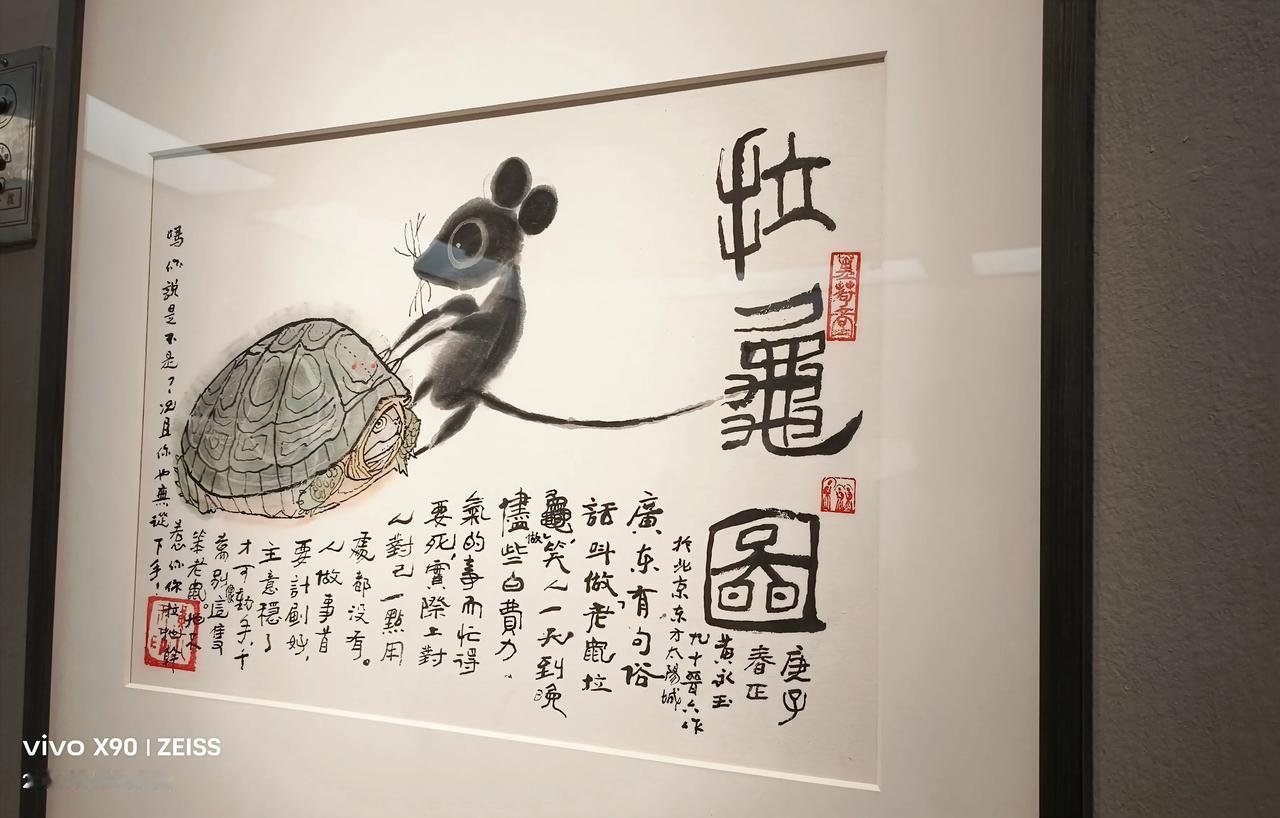 拉龜圖
庚子
春正
黄永玉
九十晉六作
於北京东方太陽城
廣东有句俗
話叫做「老鼠拉
龜」,笑人一天到晚
儘做些白費力
氣的事而忙得
要死,實際上對
人對己一點用
處都没有。
人做事首
要計劃好,
主意穩了
才可動手,千
萬别像這隻
笨老鼠。牠不
惹你你拉牠幹
嗎你說是不是?况且你也無從下手!
vivo X90 | ZEISS